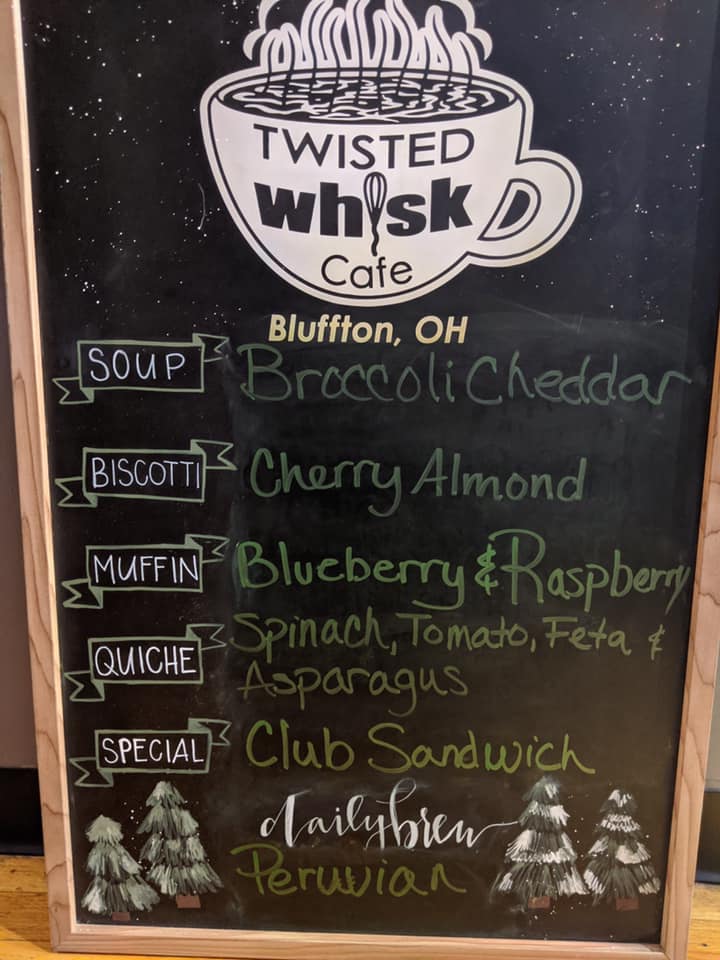 TWISTED
whisk
Cafe
Bluffton, OH
SOUP Broccoli Cheddar
BISCOTTI Cherry Almond
MUFFIN Blueberry & Raspberry
QUICHE Spinach, Tomato, Feta &
Asparagus
SPECIAL Club Sandwich
daily brew
Peruvian